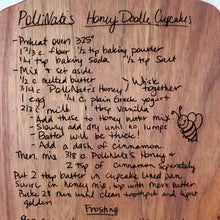 PolliNate's Honey Doodle Cupcakes
- Preheat oven 375°
1 2/3 c. flour 1/2 tsp baking powder
1/4 tsp baking soda 1/2 tsp salt
- Mix & set aside
1/2 c. melted butter
3/4 c. PolliNate's Honey
Whisk together
1 egg 1/4 c. plain Greek yogurt
2/3 c. milk 1 tbsp vanilla
- Add these to Honey butter mix
- Slowly add dry until no lumps
Batter will be thick!
- Add a dash of cinnamon.
Then, mix PolliNate's Honey &
2 tsp of cinnamon separately
Put 2 tbsp batter in cupcake lined pan
Swirl in honey mix, top with more batter
Bake 25 min until clean toothpick and light
golden
Frosting